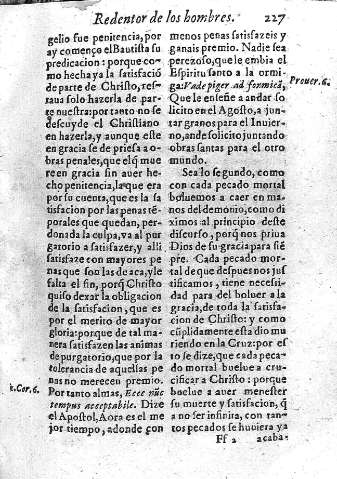 Redentor de los hombres. 227
gelio fue penitencia, por
ay començo el Bautista su
predicacion: porque co-
mo hecha ya la satisfació
de parte de Christo, res-
taua solo hazerla de par-
te nuestra: por tanto no se
descuyde el Christiano
en hazerla, y aunque este
en gracia se de priesa a o-
bras penales, que el q̃ mue
re en gracia sin auer he-
cho penitencia, la que era
por su cuenta, que es la sa
tisfacion por las penas té-
porales que quedan, per-
donada la culpa, va al pur
gatorio a satisfazer, y alli
satisfaze con mayores pe
nas que son las de aca, y le
falta el fin, porq̃ Christo
quiso dexar la obligacion
de la satisfacion, que es
por el merito de mayor
gloria: porque de tal ma
nera satisfazen las animas
de purgatorio, que por la
tolerancia de aquellas pe
nas no merecen premio.
Por tanto almas, Ecce nũc
tempus acceptabile. Dize
el Apostol, Aora es el me
jor tiempo, adonde con
2. Cor. 6.
menos penas satisfazeis y
ganais premio. Nadie sea
perezoso, que le embia el
Espiritu santo a la ormi-
ga: Vade piger ad formicã,
Que le enseñe a andar so
licito en el Agosto, a jun-
tar granos para el Inuier-
no, ande solicito juntando
obras santas para el otro
mundo.
Prouer. 6.
Sea lo segundo, como
con cada pecado mortal
boluemos a caer en ma-
nos del demonio, como di
ximos al principio deste
discurso, porq̃ nos priua
Dios de su gracia para sié
pre. Cada pecado mor-
tal de que despues nos jus
tificamos, tiene necesi-
dad para del boluer a la
gracia, de toda la satisfa-
cion de Christo: y como
cũplidamente esta dio mu
riendo en la Cruz: por es
to se dize, que cada peca-
do mortal buelue a cru-
cificar a Christo: porque
buelue a auer menester
su muerte y satisfacion, q̃
a no ser infinita, con tan-
tos pecados se huuiera ya
Ff 2 acaba-